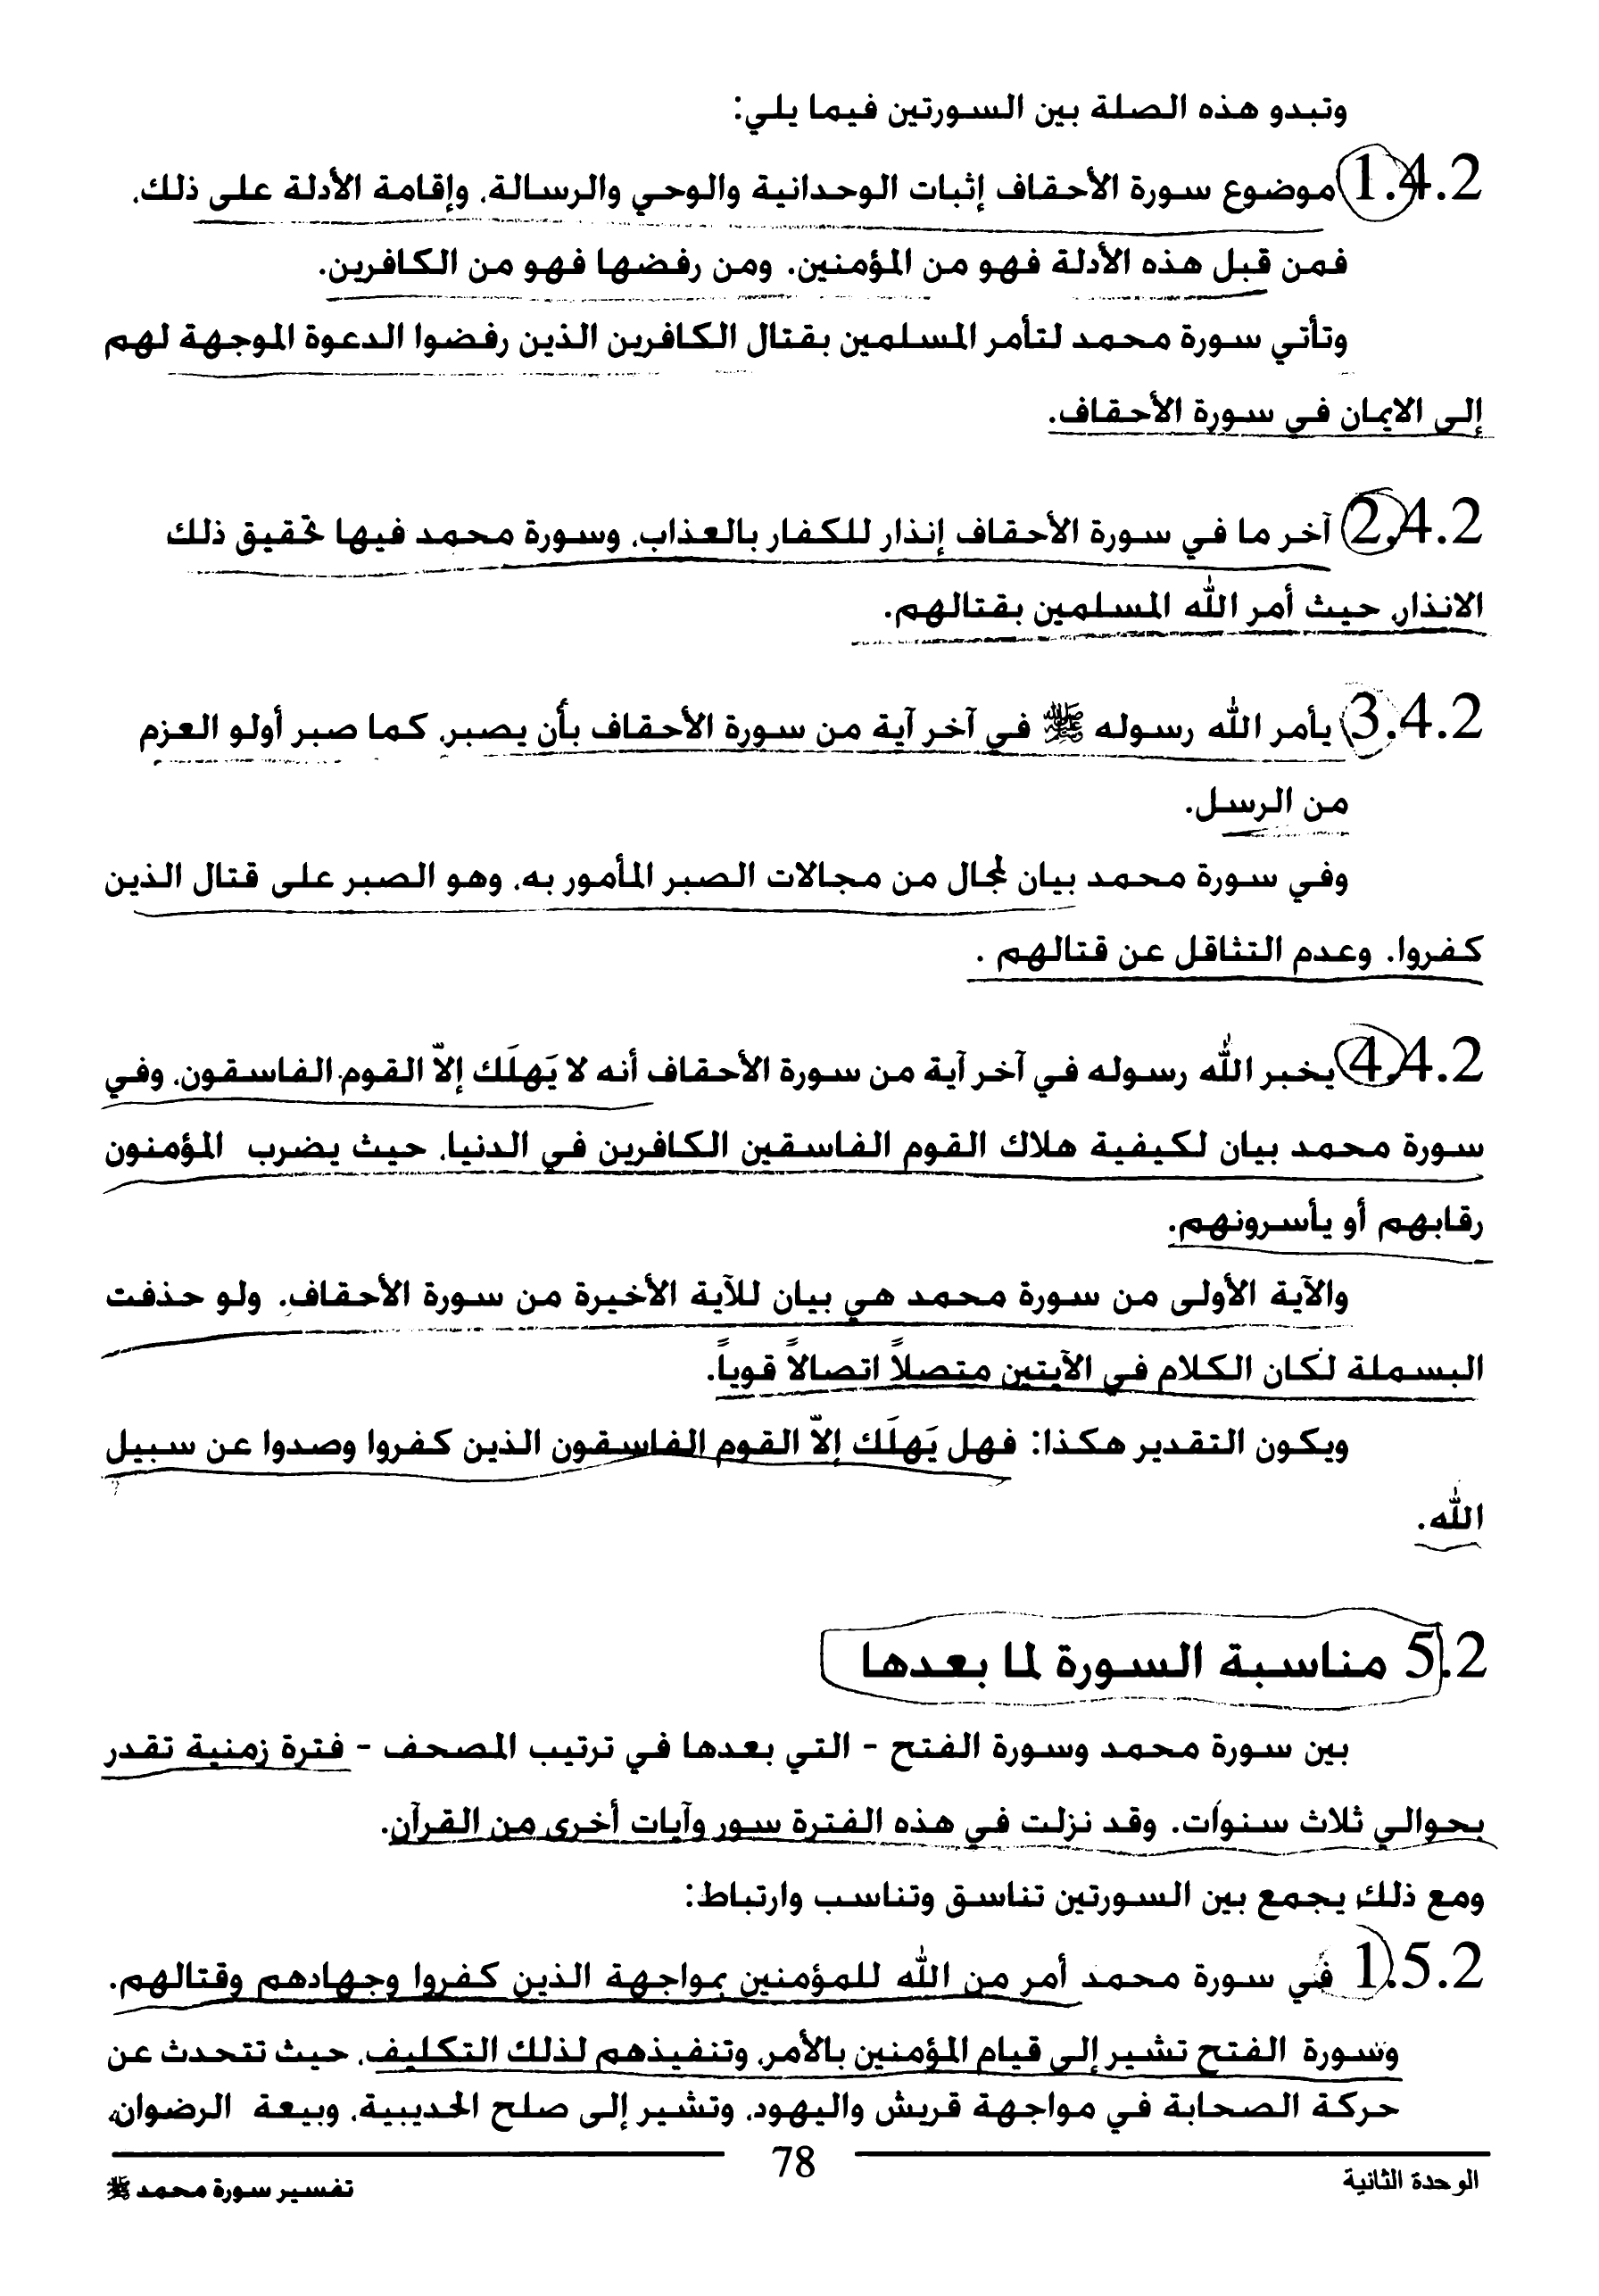 وتبدو هذه الصلة بين السورتين فيما يلي:
1.4.2 موضوع سورة الأحقاف إثبات الوحدانية والوحي والرسالة، وإقامة الأدلة على ذلك،
فمن قبل هذه الأدلة فهو من المؤمنين، ومن رفضها فهو من الكافرين.
وتأتي سورة محمد لتأمر المسلمين بقتال الكافرين الذين رفضوا الدعوة الموجهة لهم
إلى الايمان في سورة الأحقاف.
2.4.2 آخر ما في سورة الأحقاف إنذار للكفار بالعذاب، وسورة محمد فيها تحقيق ذلك
الانذار، حيث أمر الله المسلمين بقتالهم.
3.4.2 يأمر الله رسوله ﷺ في آخر آية من سورة الأحقاف بأن يصبر، كما صبر أولو العزم
من الرسل.
وفي سورة محمد بيان لمجال من مجالات الصبر المأمور به، وهو الصبر على قتال الذين
كفروا، وعدم التثاقل عن قتالهم .
4.4.2 يخبر الله رسوله في آخر آية من سورة الأحقاف أنه لا يَهلَك إلاّ القوم الفاسقون، وفي
سورة محمد بيان لكيفية هلاك القوم الفاسقين الكافرين في الدنيا، حيث يضرب المؤمنون
رقابهم أو يأسرونهم.
والآية الأولى من سورة محمد هي بيان للآية الأخيرة من سورة الأحقاف، ولو حذفت
البسملة لكان الكلام في الآيتين متصلاً اتصالاً قوياً.
ويكون التقدير هكذا: فهل يَهلَك إلاّ القوم الفاسقون الذين كفروا وصدوا عن سبيل
الله.
5.2 مناسبة السورة لما بعدها
بين سورة محمد وسورة الفتح - التي بعدها في ترتيب المصحف - فترة زمنية تقدر
بحوالي ثلاث سنوات، وقد نزلت في هذه الفترة سور وآيات أخرى من القرآن.
ومع ذلك يجمع بين السورتين تناسق وتناسب وارتباط:
1.5.2 في سورة محمد أمر من الله للمؤمنين بمواجهة الذين كفروا وجهادهم وقتالهم.
وسورة الفتح تشير إلى قيام المؤمنين بالأمر، وتنفيذهم لذلك التكليف، حيث تتحدث عن
حركة الصحابة في مواجهة قريش واليهود، وتشير إلى صلح الحديبية، وبيعة الرضوان،
78
الوحدة الثانية
تفسير سورة محمد ﷺ